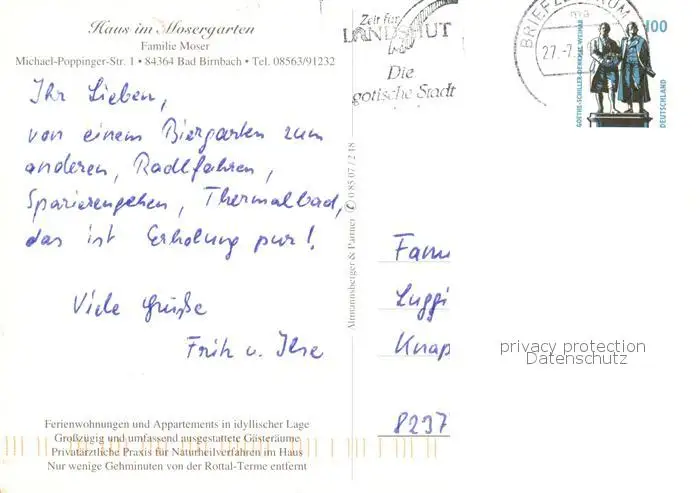 Haus im Mosergarten
Familie Moser
Michael-Poppinger-Str. 1 • 84364 Bad Birnbach • Tel. 08563/91232
Ihr Lieben,
von einem Biergarten zum
anderen, Radlfahren,
Spazierengehen, Thermalbad,
das ist Erholung pur!
Viele Grüße
Fritz u. Ilse
Ferienwohnungen und Appartements in idyllischer Lage
Großzügig und umfassend ausgestattete Gästeräume
Privatärztliche Praxis für Naturheilverfahren im Haus
Nur wenige Gehminuten von der Rottal-Terme entfernt
Altmannsberger & Partner ✆ 0 85 07 / 2 18
Zeit für
LANDSHUT
Die
gotische Stadt
BRIEFZENTRUM
27.-7.
GOETHE-SCHILLER-DENKMAL WEIMAR
100
DEUTSCHLAND
Fam
Luggi
Knap
8237
privacy protection
Datenschutz